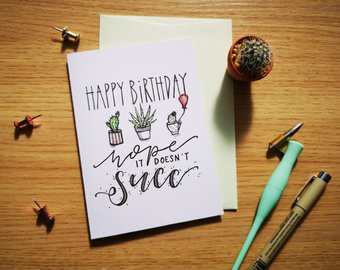 HAPPY BiRTHDAY
hope
IT DOESN'T
Succ